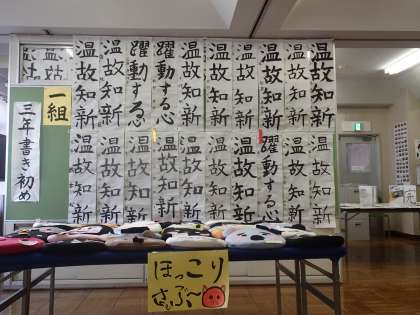 三年書き初め
一組
温故知新
温故知新
躍動する心
躍動する心
温故知新
温故知新
温故知新
温故知新
温故知新
温故知新
温故知新
温故知新
温故知新
温故知新
温故知新
温故知新
温故知新
躍動する心
温故知新
温故知新
ほっこり
さぶ〜